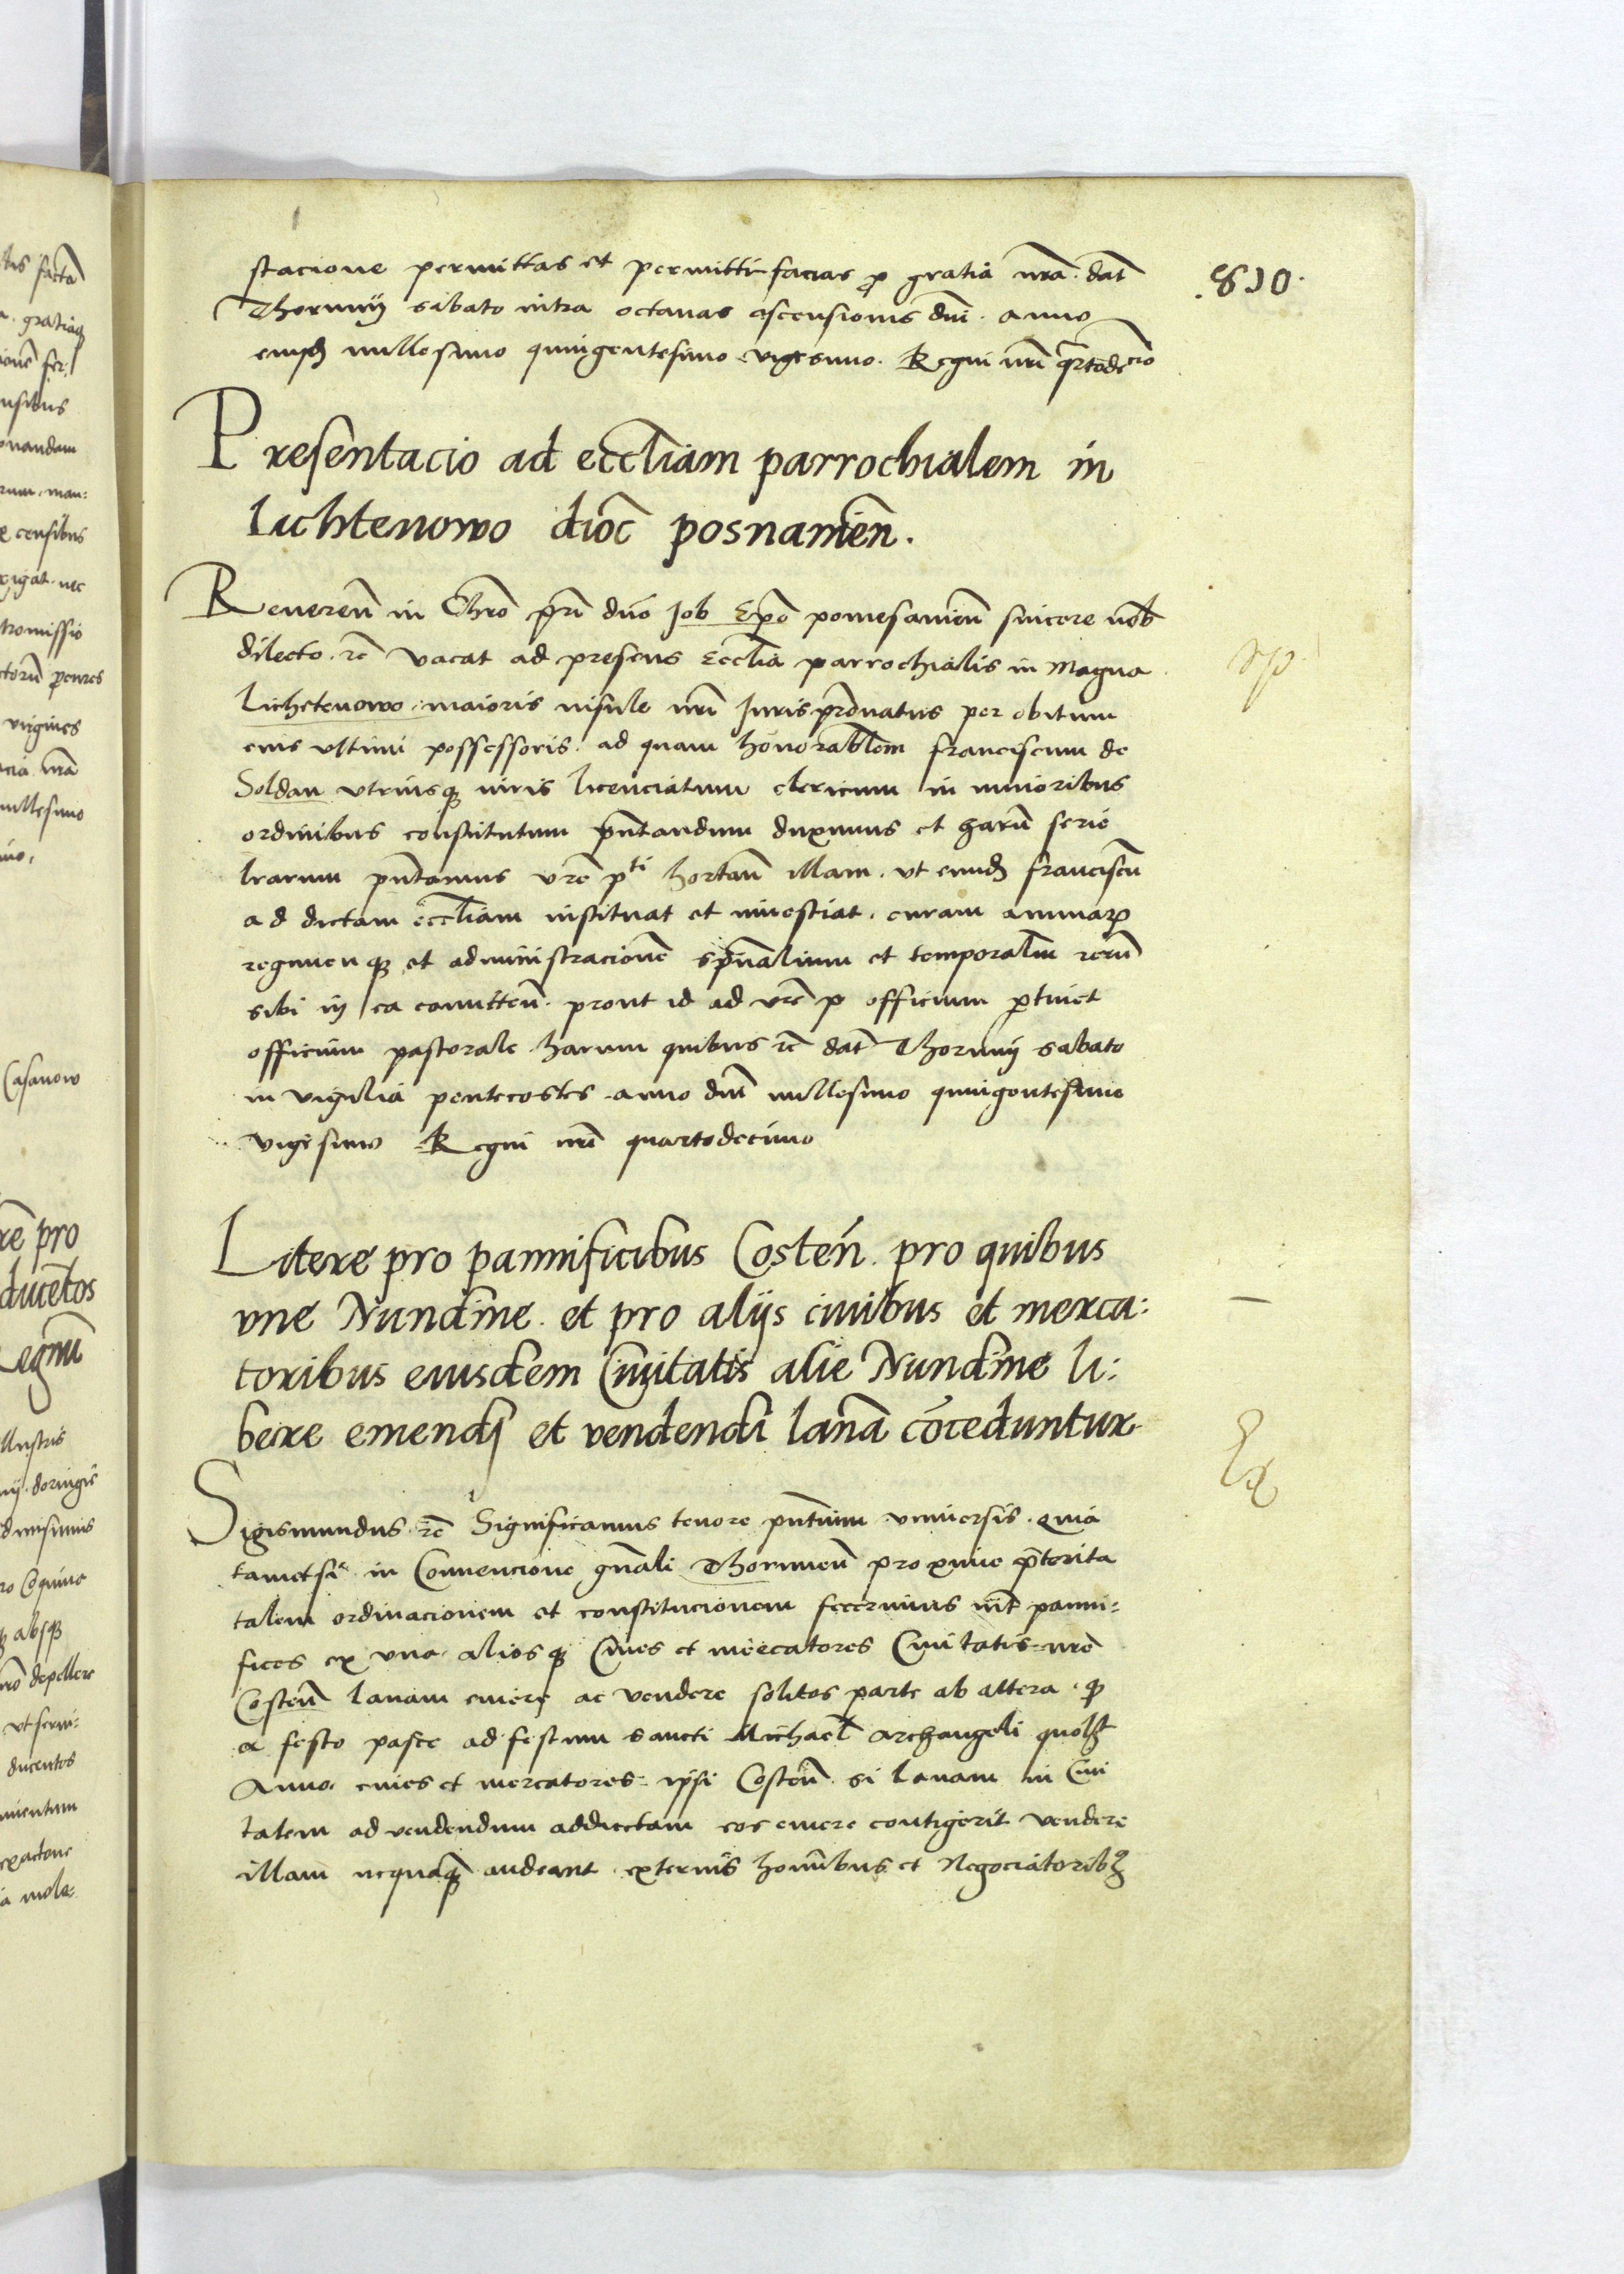 .810.
stacione permittas et permitti facias p gratia nrã. dat̃
Thorunij sabato infra octauas ascensionis dñi. anno
eiusd millesimo quingentesimo vigesimo. Regni nri q̃rtodecĩo
Presentacio ad eccl̃iam parrochialem in
Lichtenowo dioc̃ posnanieñ.
Reuereñ in Chr̃o p̃ri dño Job Ep̃o pomesanieñ sincere nob̃
dilecto. rc̃ vacat ad presens Eccl̃ia parrochialis in Magna
Lichetenowo maioris insule nr̃i Juris pr̃onatus per obitum
eius vltimi possessoris. ad quam honorabl̃em franciscum de
Soldau vtriusq iuris licenciatum clericum in minoribus
ordinibus constitutum pñtandum duximus et harũ serie
lrarum pñtamus vrẽ pti hortañ illam. vt eund franciscũ
ad dictam eccl̃iam instituat et inuestiat. curam animarꝝ
regimenq et administracionẽ spũalium et temporaliũ rerũ
sibi in ea comitteñ. prout id ad vrẽ p officium ptinet
officium pastorale. harum quibus rc̃ dat̃ Thorunij sabato
in vigilia pentecostes. anno dñi millesimo quingentesimo
vigesimo Regni nr̃i quartodecimo
Litere pro pannificibus Costeñ. pro quibus
vne Nundine. et pro alijs ciuibus et merca:
toribus eiusdem Ciuitatis alie Nundine li:
bere emendi et vendendi lanã cõceduntur
Sigismundus rc̃ Significamus tenore pñtium vniuersis. Quia
tametsi in Conuencione gñali Thorunieñ proxime p̃terita
talem ordinacionem et constitucionem fecerimus int̃ panni:
fices ex vna. aliosq Ciues et mercatores Ciuitatis nrẽ
Costeñ lanam emere ac vendere solitos parte ab altera. q
a festo pasce ad festum sancti Michael̃ Archangeli quolꝫ
Anno. ciues et mercatores ipsi Costeñ. si lanam in Ciui
tatem ad vendendum adductam eos emere contigerit vendere
illam nequaq̃ audeant externis hominibus et Negociatoribꝫ